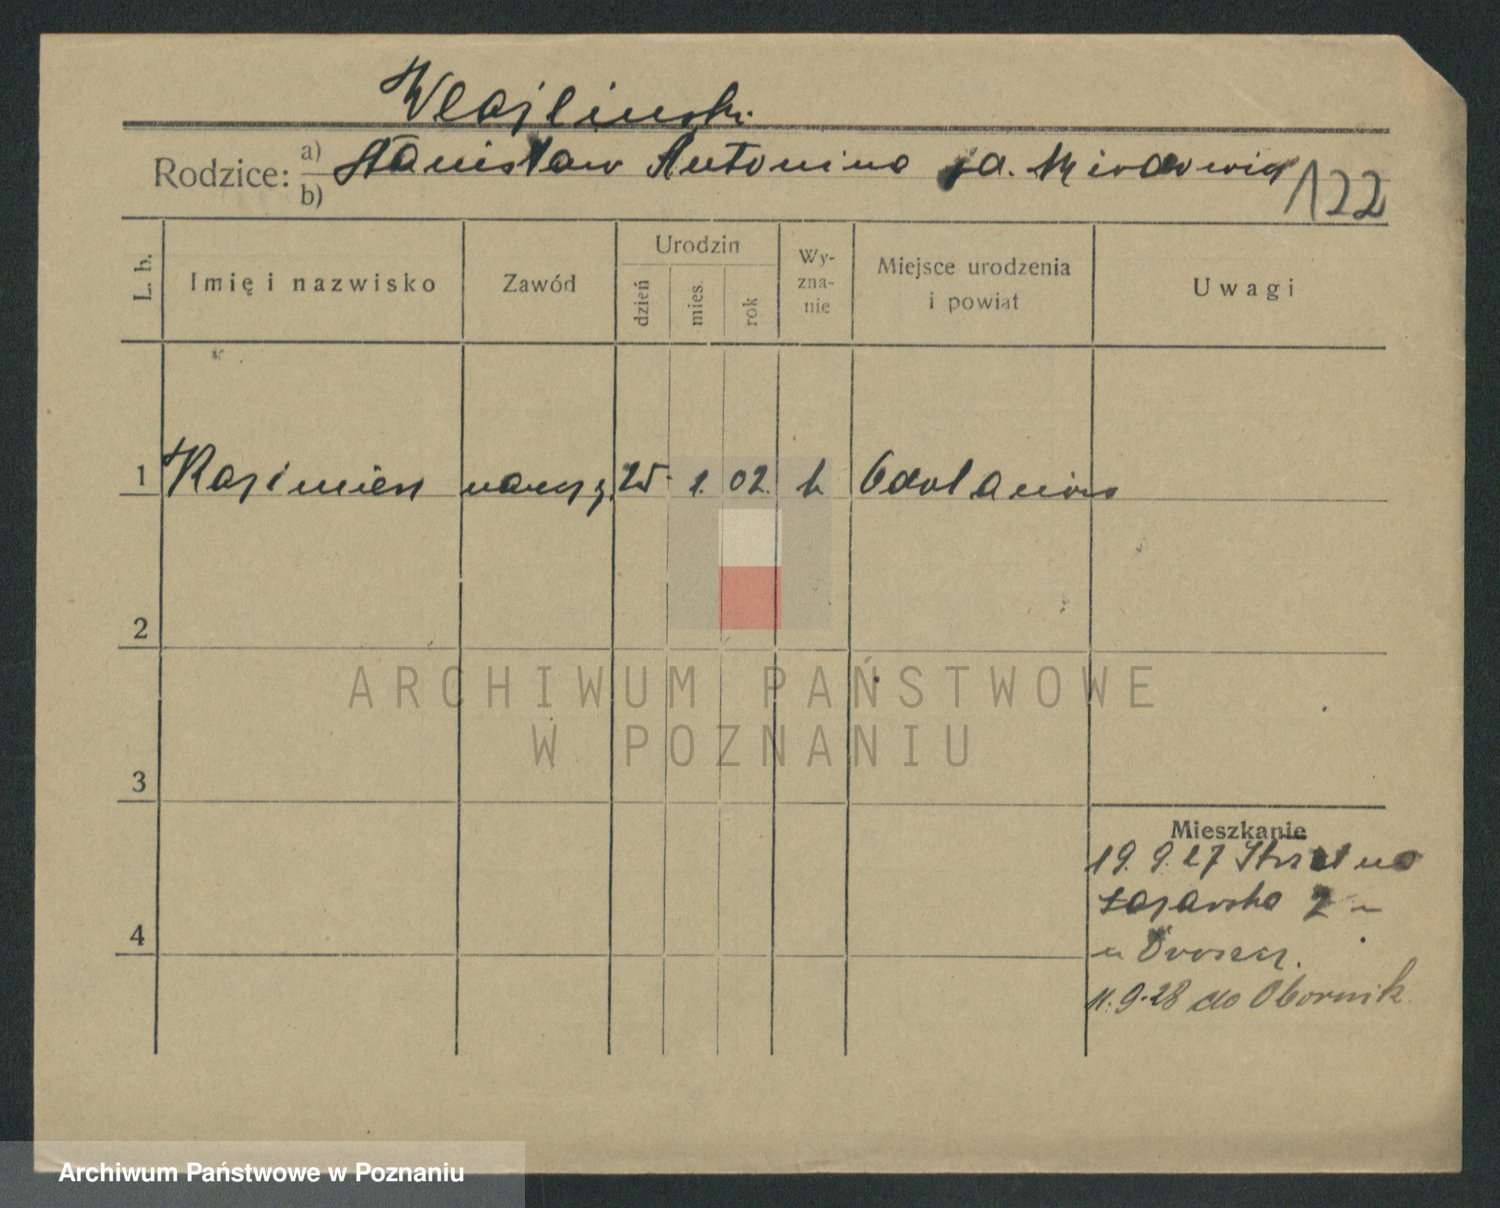 Rodzice: a) Stanisław Antonina
b)
122
L. b. Imię i nazwisko Zawód Urodzin dzień mies. rok Wy-zna-nie Miejsce urodzenia i powiat Uwagi
1 Kazimierz naucz. 25. 1. 02. k Odolanów
2
3
4
Mieszkanie
19. 9. 27
Łazarska 2
11.9.28 do Obornik
ARCHIWUM PAŃSTWOWE
W POZNANIU
Archiwum Państwowe w Poznaniu